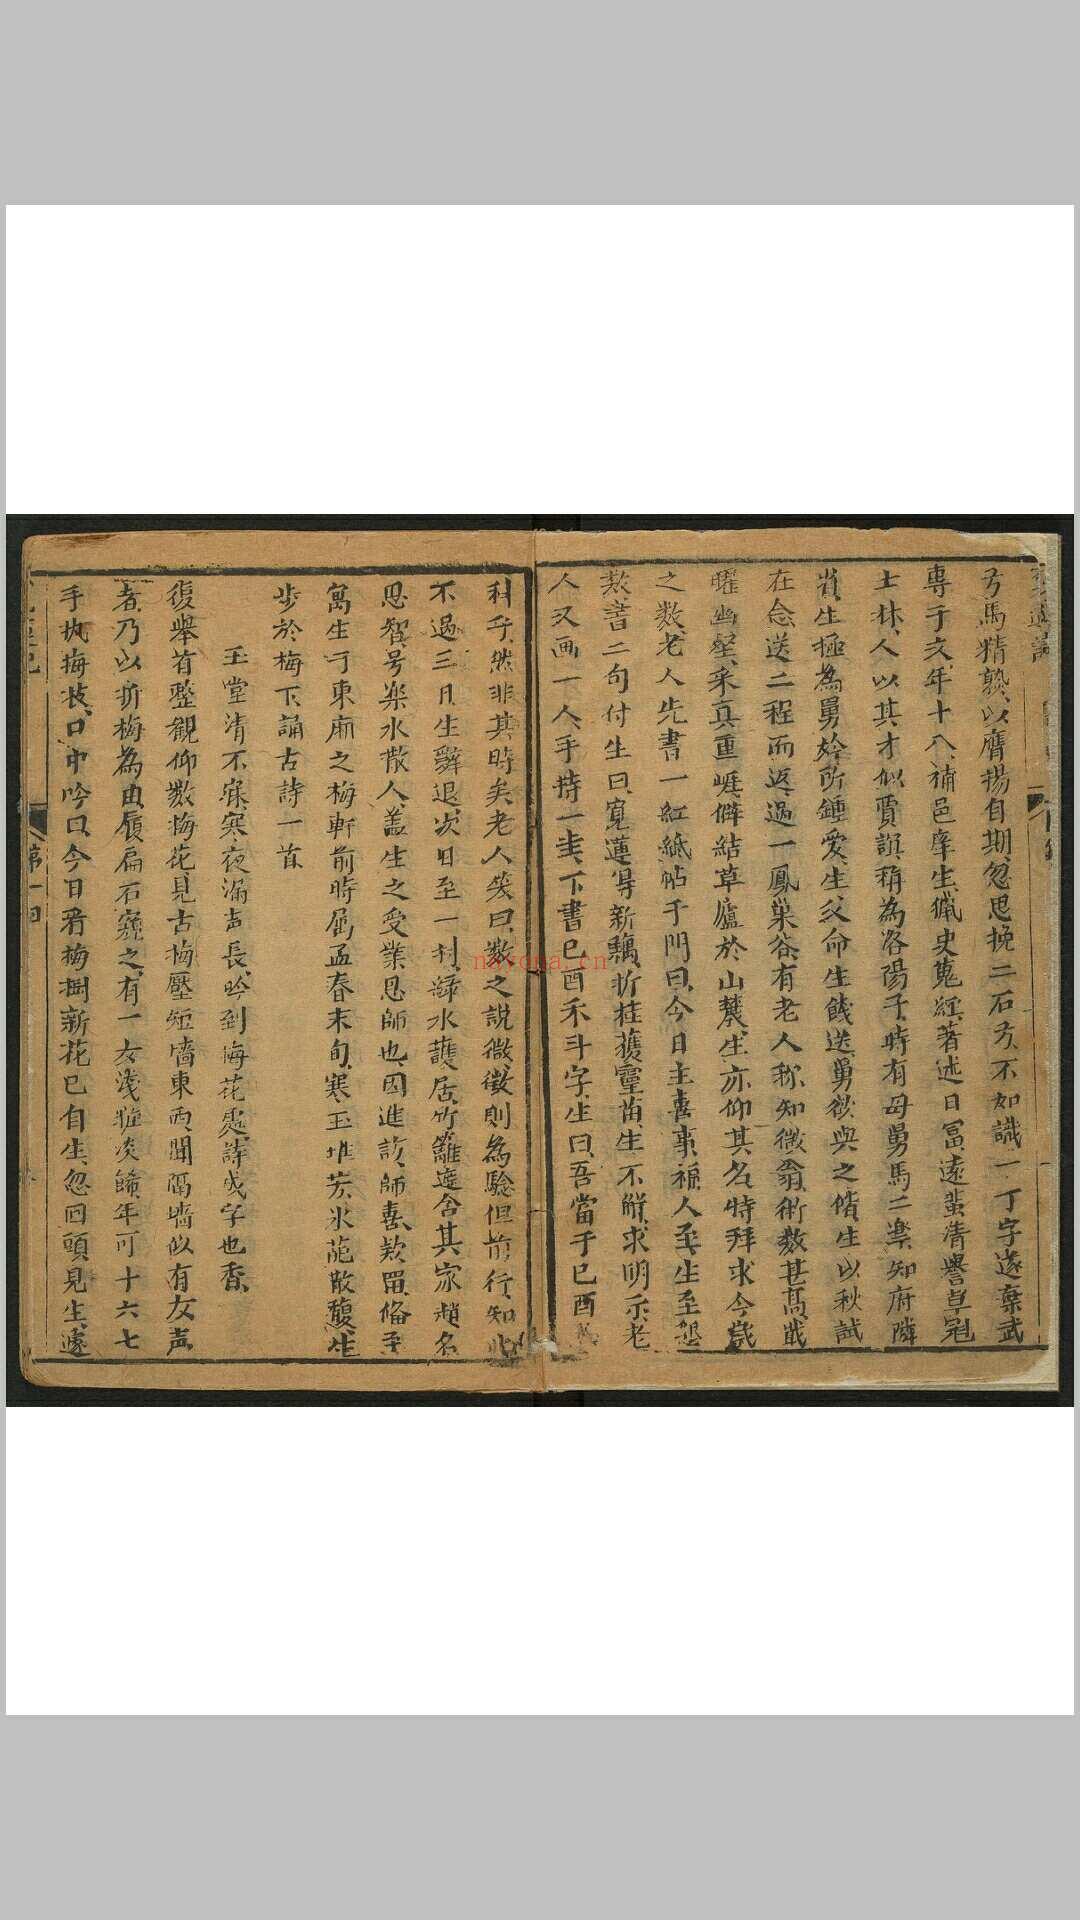 弓馬精熟以膺揚自期忽思挽二石弓不如識一丁字遂棄武
專于文年十八補邑庠生獵史蒐紅著述日富遠蜚清譽卓冠
士林人以其才似賈誼稱為洛陽子時有母舅馬二樂知府隣
省生極為舅妗所鍾愛生父命生餞送舅欲與之偕生以秋試
在念送二程而返過一鳳巢谷有老人称知微翁術数甚高戢
曜幽壑采真重崕僻結草廬於山麓生亦仰其名特拜求今歲
之数老人先書一紅紙帖于門曰今日主喜事福人至生至懇
欵書二句付生曰寛蓮得新藕折桂獲靈苗生不觧求明示老
人又画一人手持一圭下書巳酉禾斗字生曰吾當于巳酉
科乎然非其時矣老人笑曰数之說微徵則為驗但前行知
不過三月生辭退次日至一村綠水護居竹籬遮舍其家趙名
思智号樂水散人盖生之受業恩師也因進訪師喜欵留俻至
寓生于東廂之梅軒前時属孟春末旬寒玉堆芳氷葩散馥生
步於梅下誦古詩一首
玉堂清不寐寒夜漏声長吟到梅花處詩成字也香
復舉首聖觀仰数梅花見古梅壓短墻東西聞隔墙似有友声
者乃以折梅為由履扁石窺之有一女淺粧淡餙年可十六七
手执梅枝口中吟曰今日看梅樹新花已自生忽回頭見生遂
第一